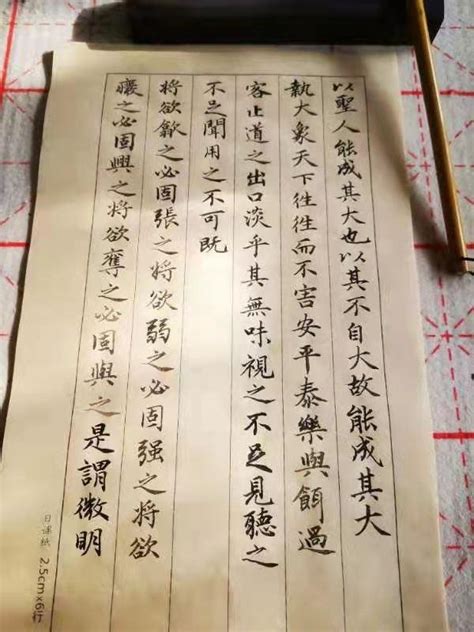 以聖人能成其大也以其不自大故能成其大
執大象天下徃徃而不害安平泰樂與餌過
客止道之出口淡乎其無味視之不足見聽之
不足聞用之不可既
將欲歙之必固張之將欲弱之必固强之將欲
癈之必固興之將欲奪之必固與之是謂微明
日课纸 2.5cm×6行